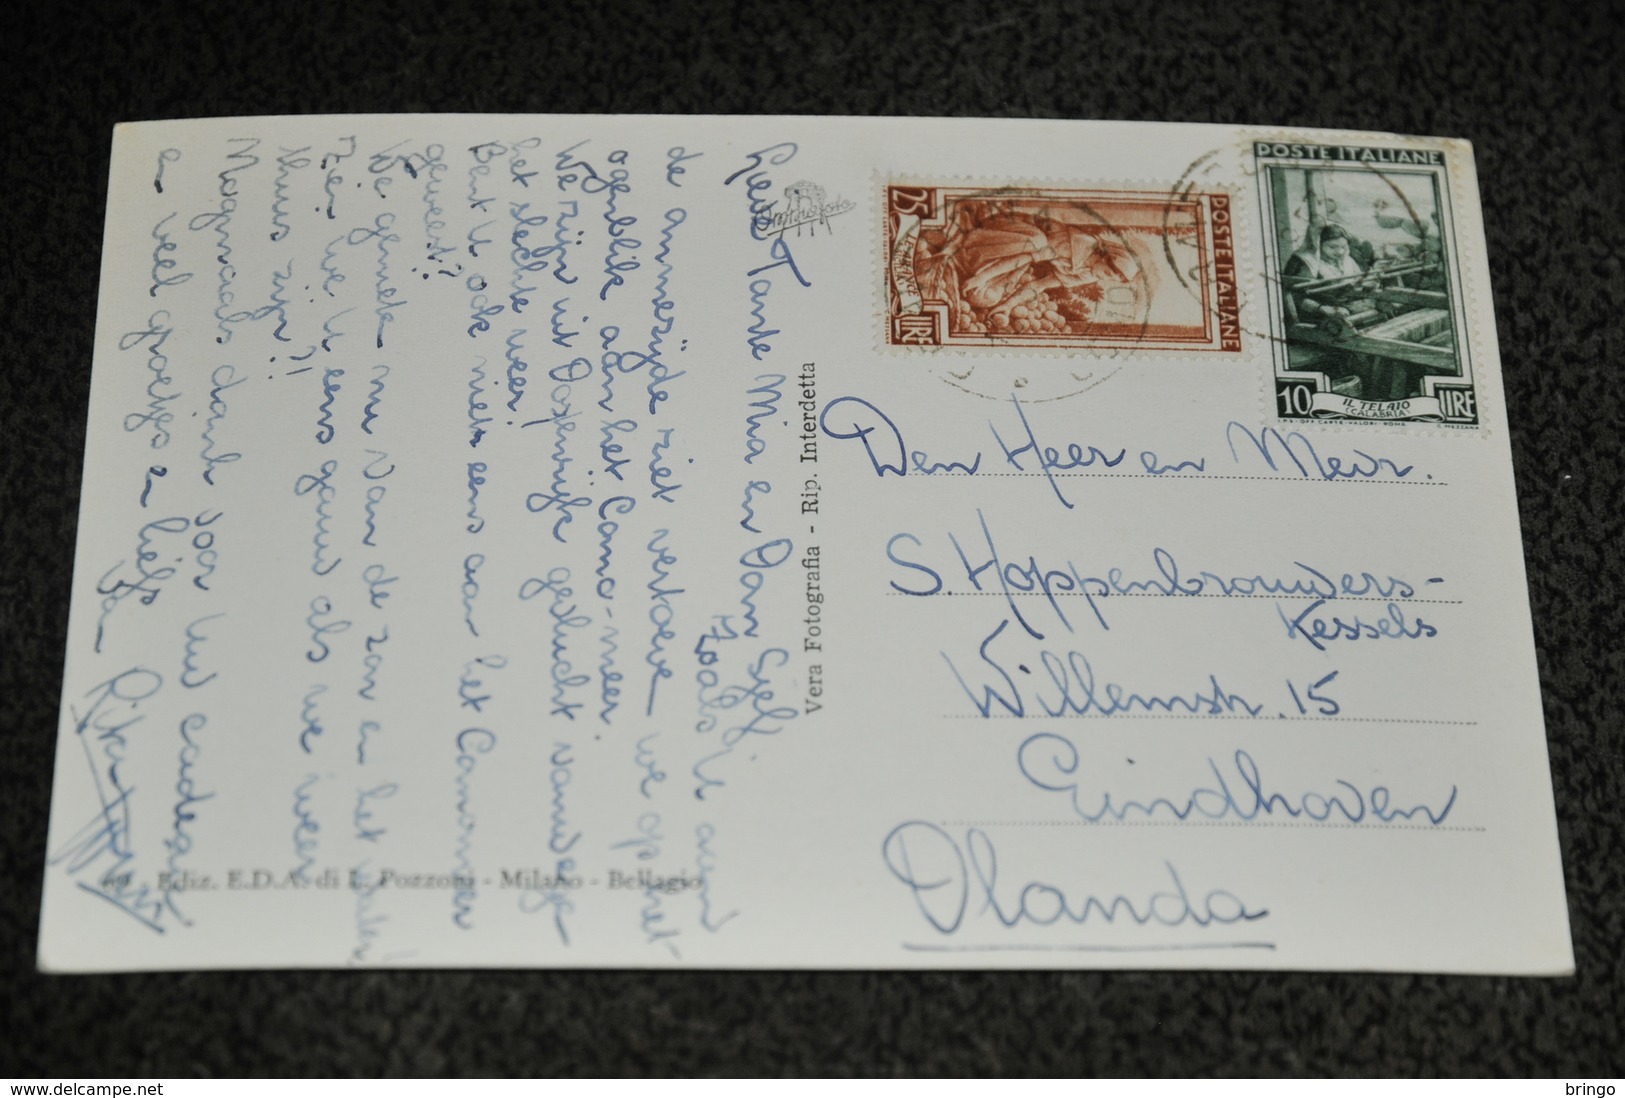 Lieve Tante Mia en Oom Sjef,
Zoals U aan
de ommezijde ziet vertoeve we op het
ogenblik aan het Como-meer.
We zijn uit Oostenrijk gevlucht vanwege
het slechte weer!
Bent U ook niet eens aan het Comomeer
geweest?
We geniete nu van de zon en het water!
Zien we U eens gauw als we weer
thuis zijn?!
Nogmaals dank voor Uw cadeau
en veel groetjes en liefs
van Rika
Vera Fotografia - Rip. Interdetta
Ediz. E.D.A. di L. Pozzoni - Milano - Bellagio
POSTE ITALIANE
25 LIRE
POSTE ITALIANE
10 LIRE
IL TELAIO
(CALABRIA)
I.P.S.-OFF. CARTE-VALORI-ROMA
C. MEZZANA
Den Heer en Mevr.
S. Hoppenbrouwers-
Kessels
Willemstr. 15
Eindhoven
Olanda
bringo
www.delcampe.net